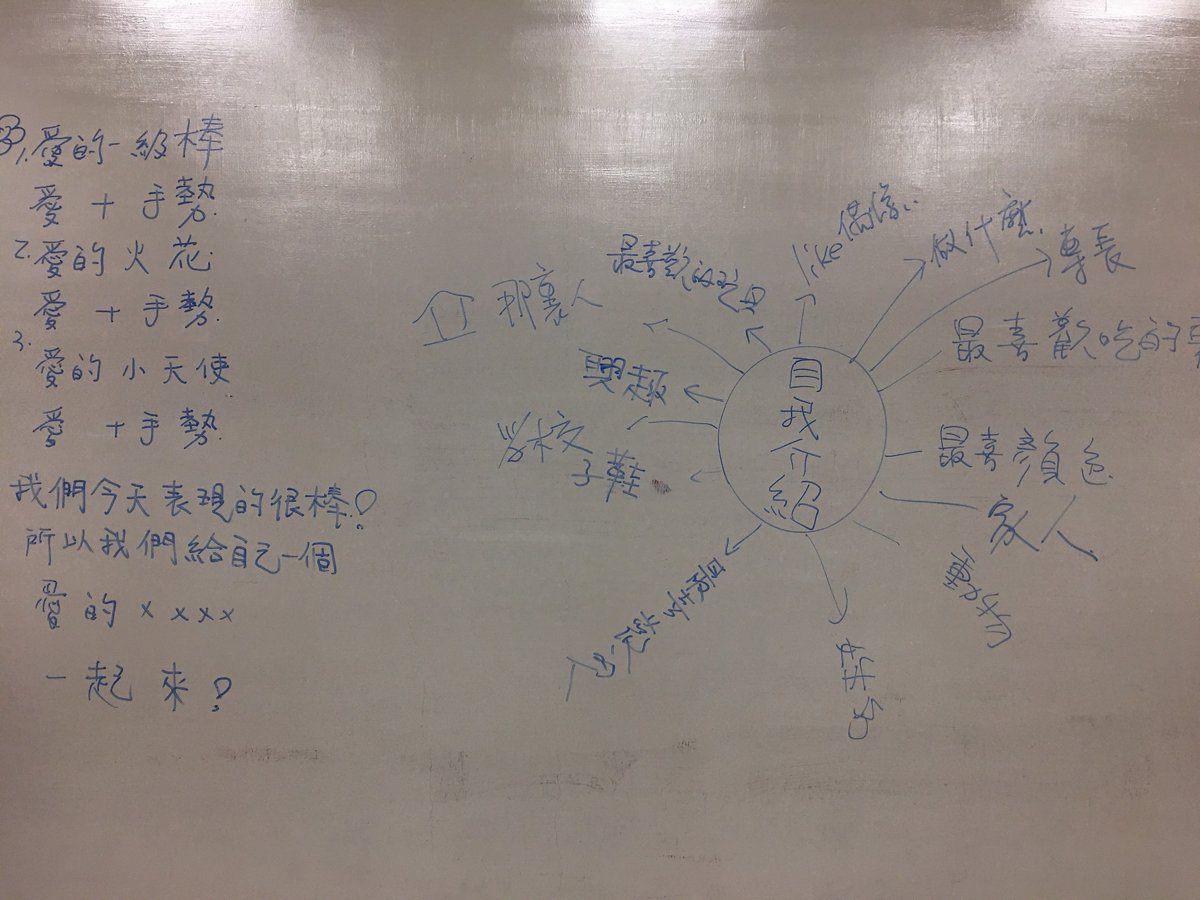 1.愛的一級棒
愛 + 手勢
2.愛的火花
愛 + 手勢
3.
愛的小天使
愛 + 手勢
我們今天表現的很棒!
所以我們給自己一個
愛的 x x x x
一起來!
自我介紹
like偶像
做什麼
專長
最喜歡吃的
最喜顏色
家人
姓名
學校
子鞋
興趣
那裏人
最喜歡的